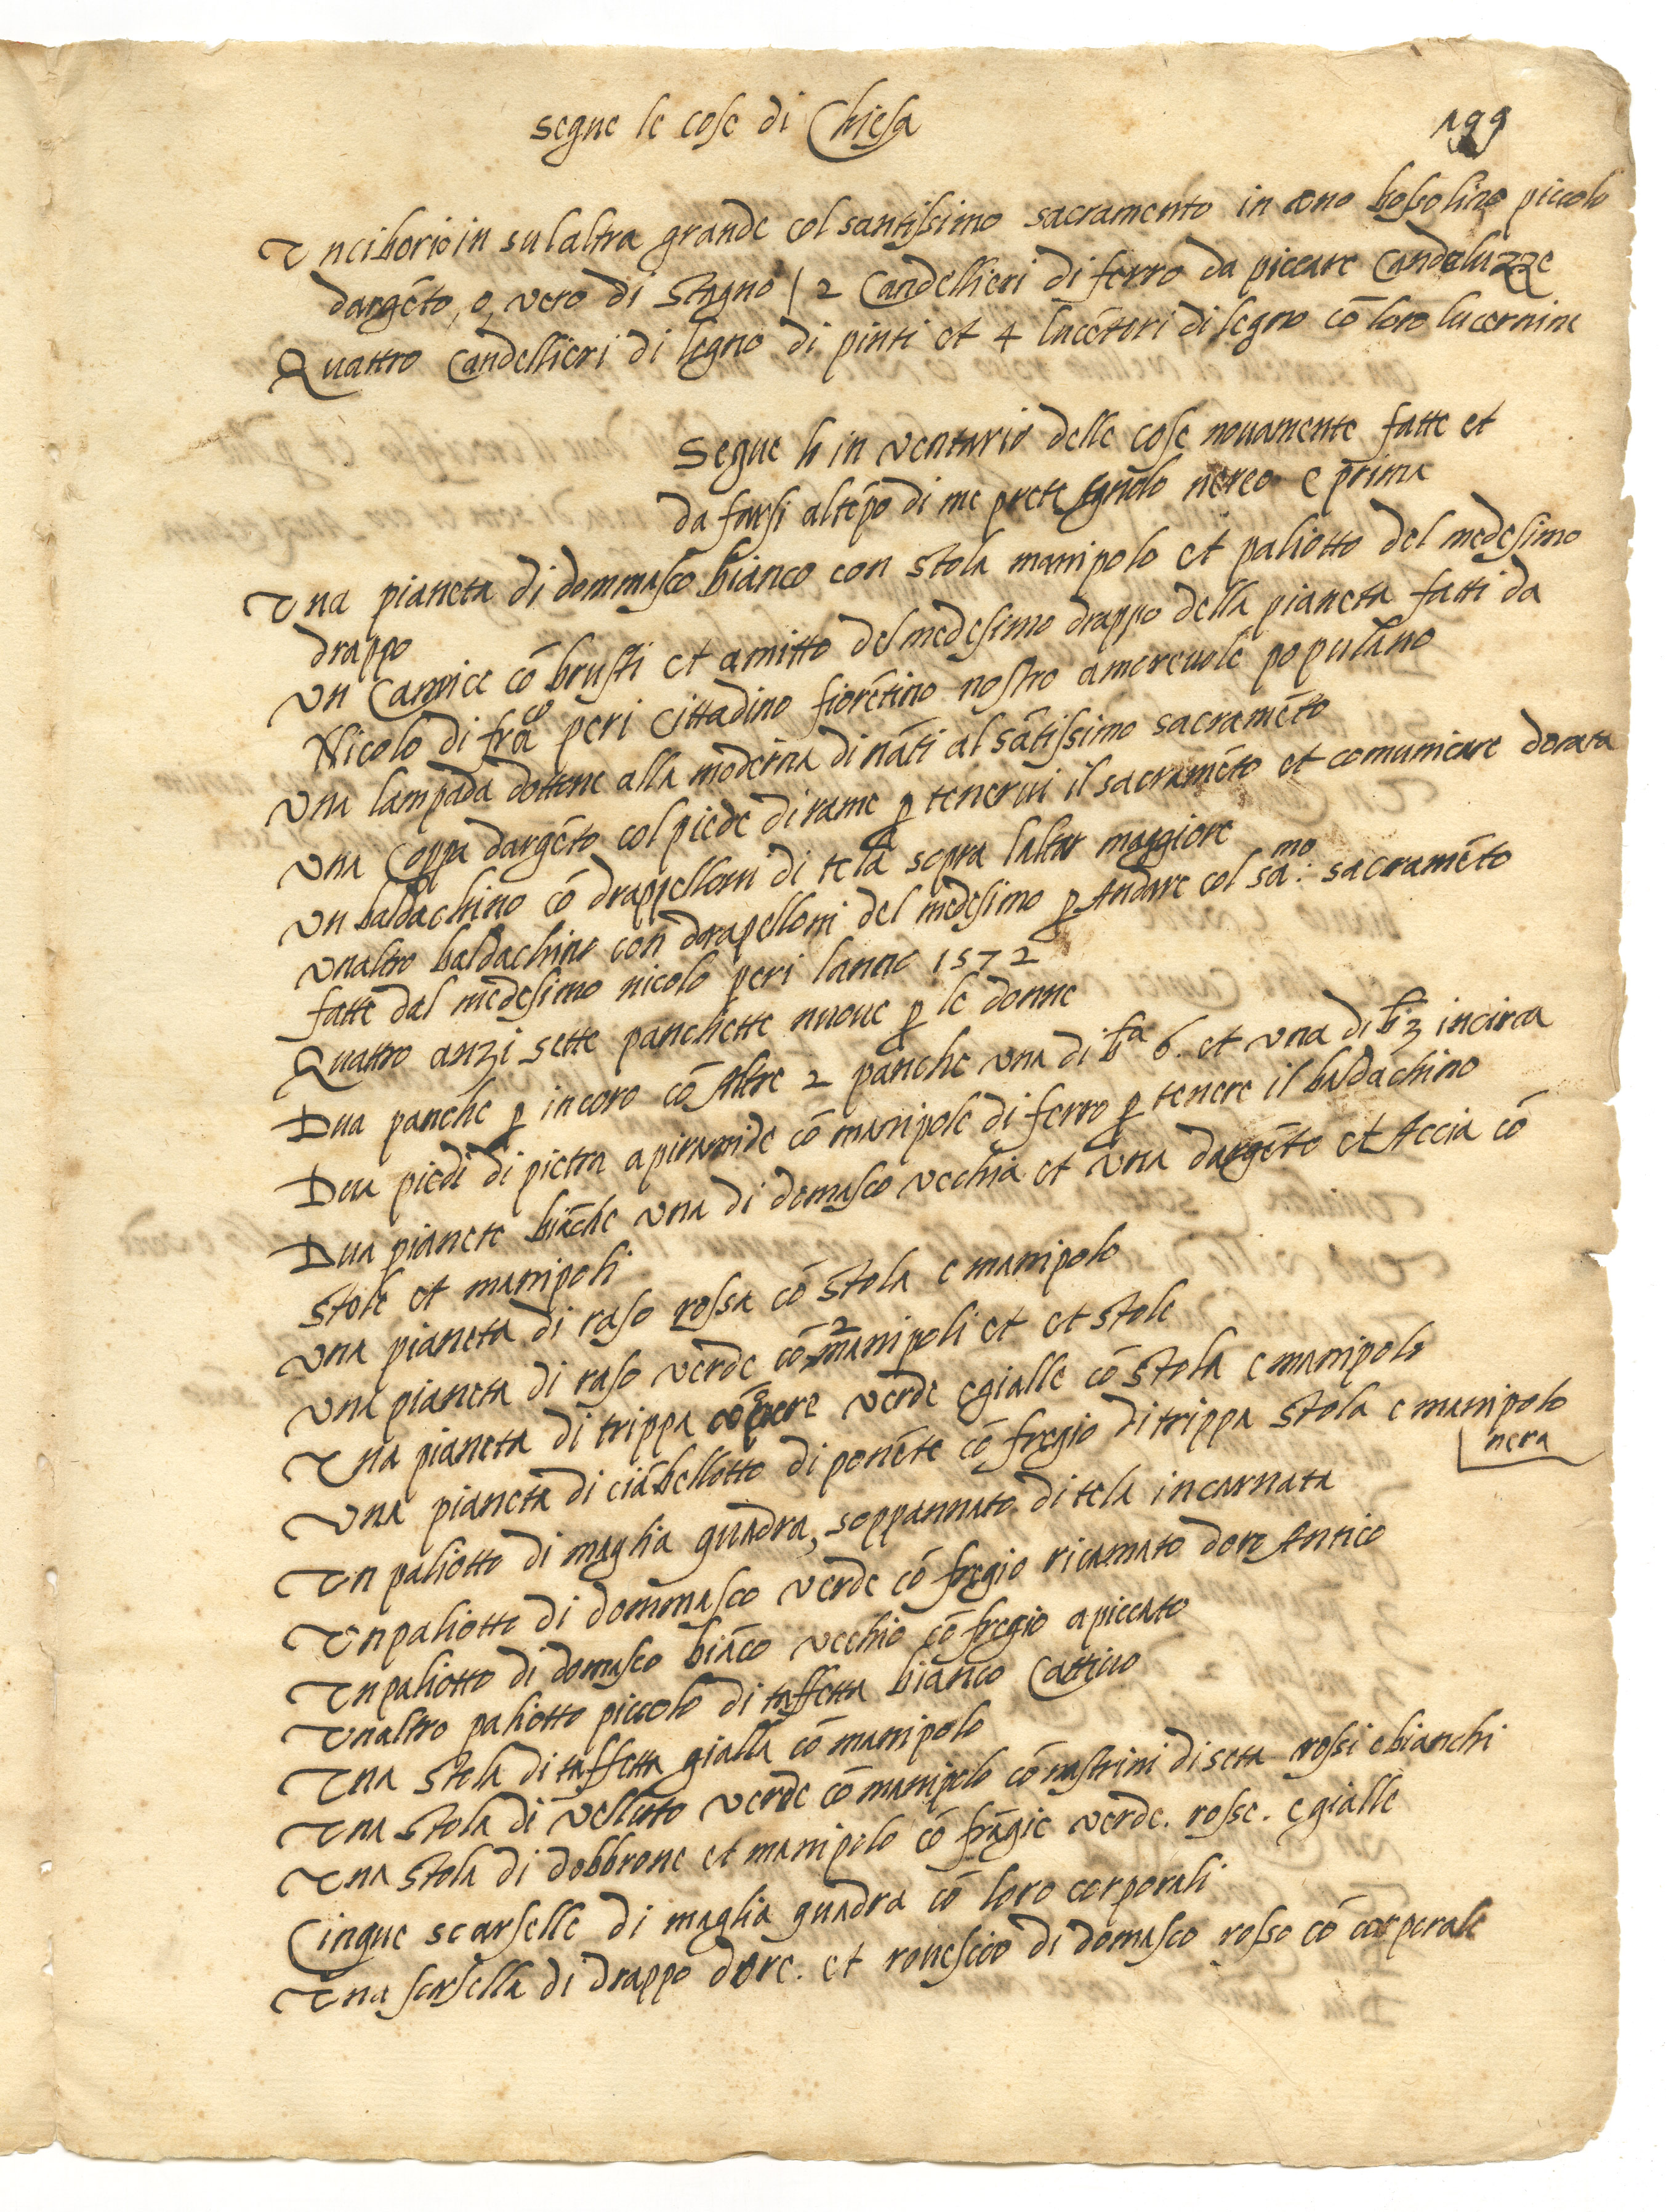 segue le cose di Chiesa
199
Unciborio in sulaltra grande col santissimo sacramento in uno bossolino piccolo
dargēto, o, vero di stagno / 2 Candellieri di ferro da piccare Candeluzze
Quattro Candellieri di legno di pinti et 4 lucēteri di legno cō loro lucernine
Segue lo in ventario delle cose novamente fatte et
da farsi altēpo di me prete nereo e prima
Una pianeta di dommasco bianco con stola manipolo et paliotto del medesimo
drappo
un Camice cō brusti et amitto del medesimo drappo della pianeta fatti da
Nicolo di fraco peri Cittadino fiorētino nostro amorevole populano
una lampada dottone alla moderna dināti al sātissimo sacramēto
una Coppa dargēto col piede di rame p tenervi il sacramēto et comunicare dorata
un baldachino cō drappelloni di tela sopra laltar maggiore
unaltro baldachino con drapelloni del medesimo p Andare col sa:mo sacramēto
fatte dal medesimo nicolo peri lanno 1572
Quattro anzi sette panchette nuove p le donne
Dua panche p incoro cō Altre 2 panche una di ba 6. et una di b 3 incirca
Dua piedi di pietra apiramide cō manipole di ferro p tenere il baldachino
Dua pianete biāche una di domasco vechia et una dargēto et Accia cō
stole et manipoli
una pianeta di raso rossa cō stola e manipolo
una pianeta di raso verde cō 2 manipoli et et stole
Una pianeta di trippa verde egialle cō stola e manipolo
una pianeta di ciābellotto di ponēte cō fregio di trippa stola e manipolo
nera
Un paliotto di maglia guadra, soppannato di tela incarnata
Unpaliotto di dommasco verde cō fregio ricamato doro Antico
Unpaliotto di domasco biāco vechio cō fregio apiccato
Unaltro paliotto piccolo di taffetta bianco Cattivo
Una stola di taffetta gialla cō manipolo
Una stola di velluto verde cō manipolo cō nastrini di seta rossi ebianchi
Una stola di dobbrone et manipolo cō frāgie verde. rosse. egialle
Cinque scarselle di maglia guadra cō loro corporali
Una scrsella di drappo doro. et rovescio di domasco rosso cō corporale